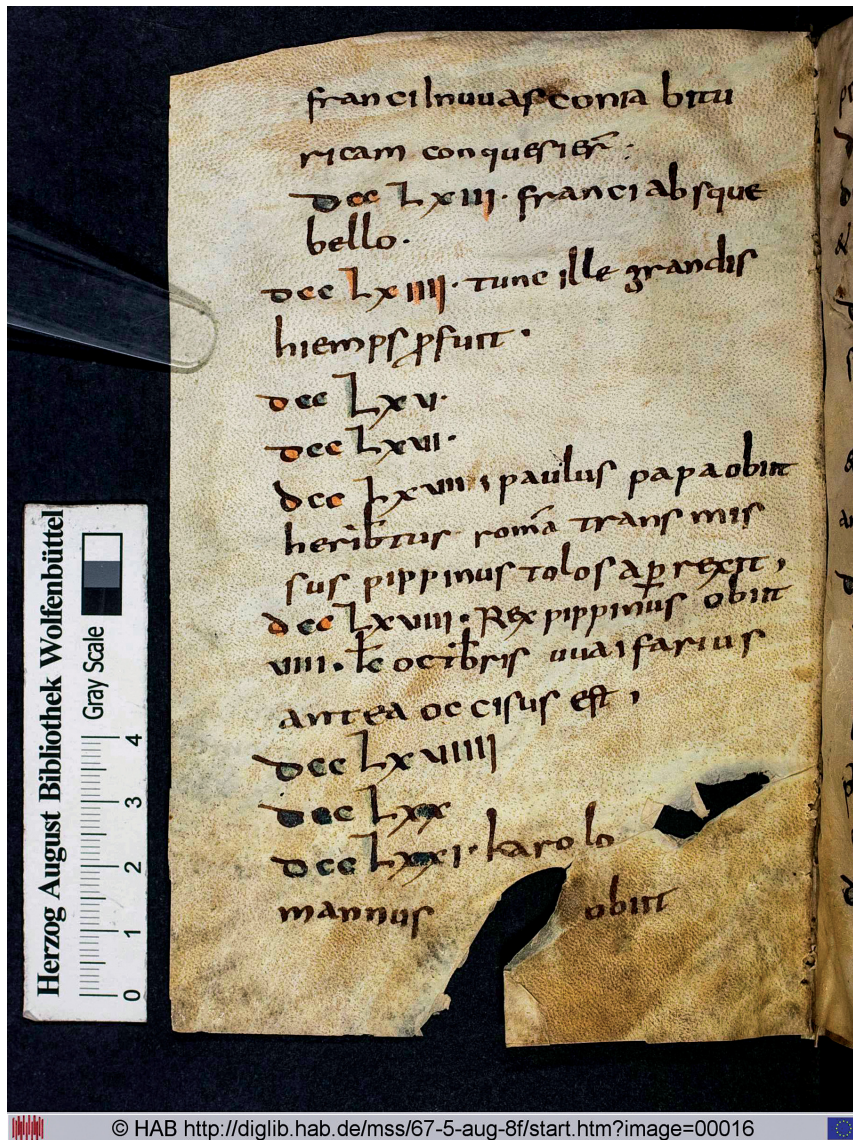 franci In uuasconia bitu
ricam conquesier̄ :
dcc Lxiii · franci absque
bello ·
dcc Lxiiii · tunc ille grandis
hiemps p̄fuit ·
dcc Lxv ·
dcc Lxvi ·
dcc Lxvii ; paulus papa obiit
herib̄tus romā trans mis
sus pippinus tolosa ꝑ rexit ;
dcc Lxviii · Rex pippinus obiit
viii · k̄l octib̄ris uuaifarius
antea occisus est ;
dcc Lxviiii
dcc Lxx
dcc Lxxi · karolo
mannus obiit
Herzog August Bibliothek Wolfenbüttel
Gray Scale
0 1 2 3 4
© HAB http://diglib.hab.de/mss/67-5-aug-8f/start.htm?image=00016